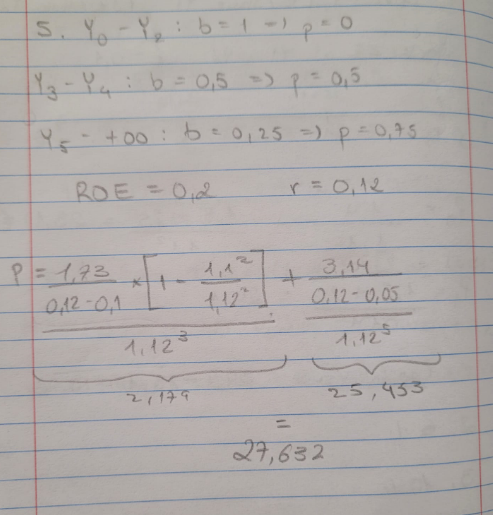 5. Y₀ - Y₂ : b = 1 => p = 0
Y₃ - Y₄ : b = 0,5 => p = 0,5
Y₅ - +00 : b = 0,25 => p = 0,75
ROE = 0,2 r = 0,12
P = 1,73 / (0,12-0,1) × [1 - 1,1² / 1,12²] / 1,12³ + 3,14 / (0,12-0,05) / 1,12⁵
2,179 25,453
=
27,632